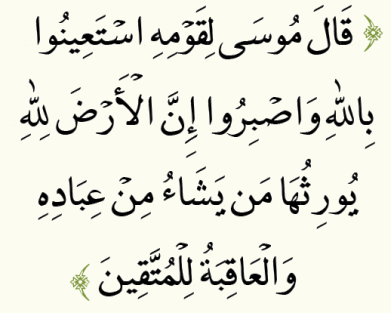 ﴿ قَالَ مُوسَى لِقَوْمِهِ اسْتَعِينُوا
بِاللهِ وَاصْبِرُوا إِنَّ الْأَرْضَ لِلهِ
يُورِثُهَا مَن يَشَاءُ مِنْ عِبَادِهِ
وَالْعَاقِبَةُ لِلْمُتَّقِينَ ﴾